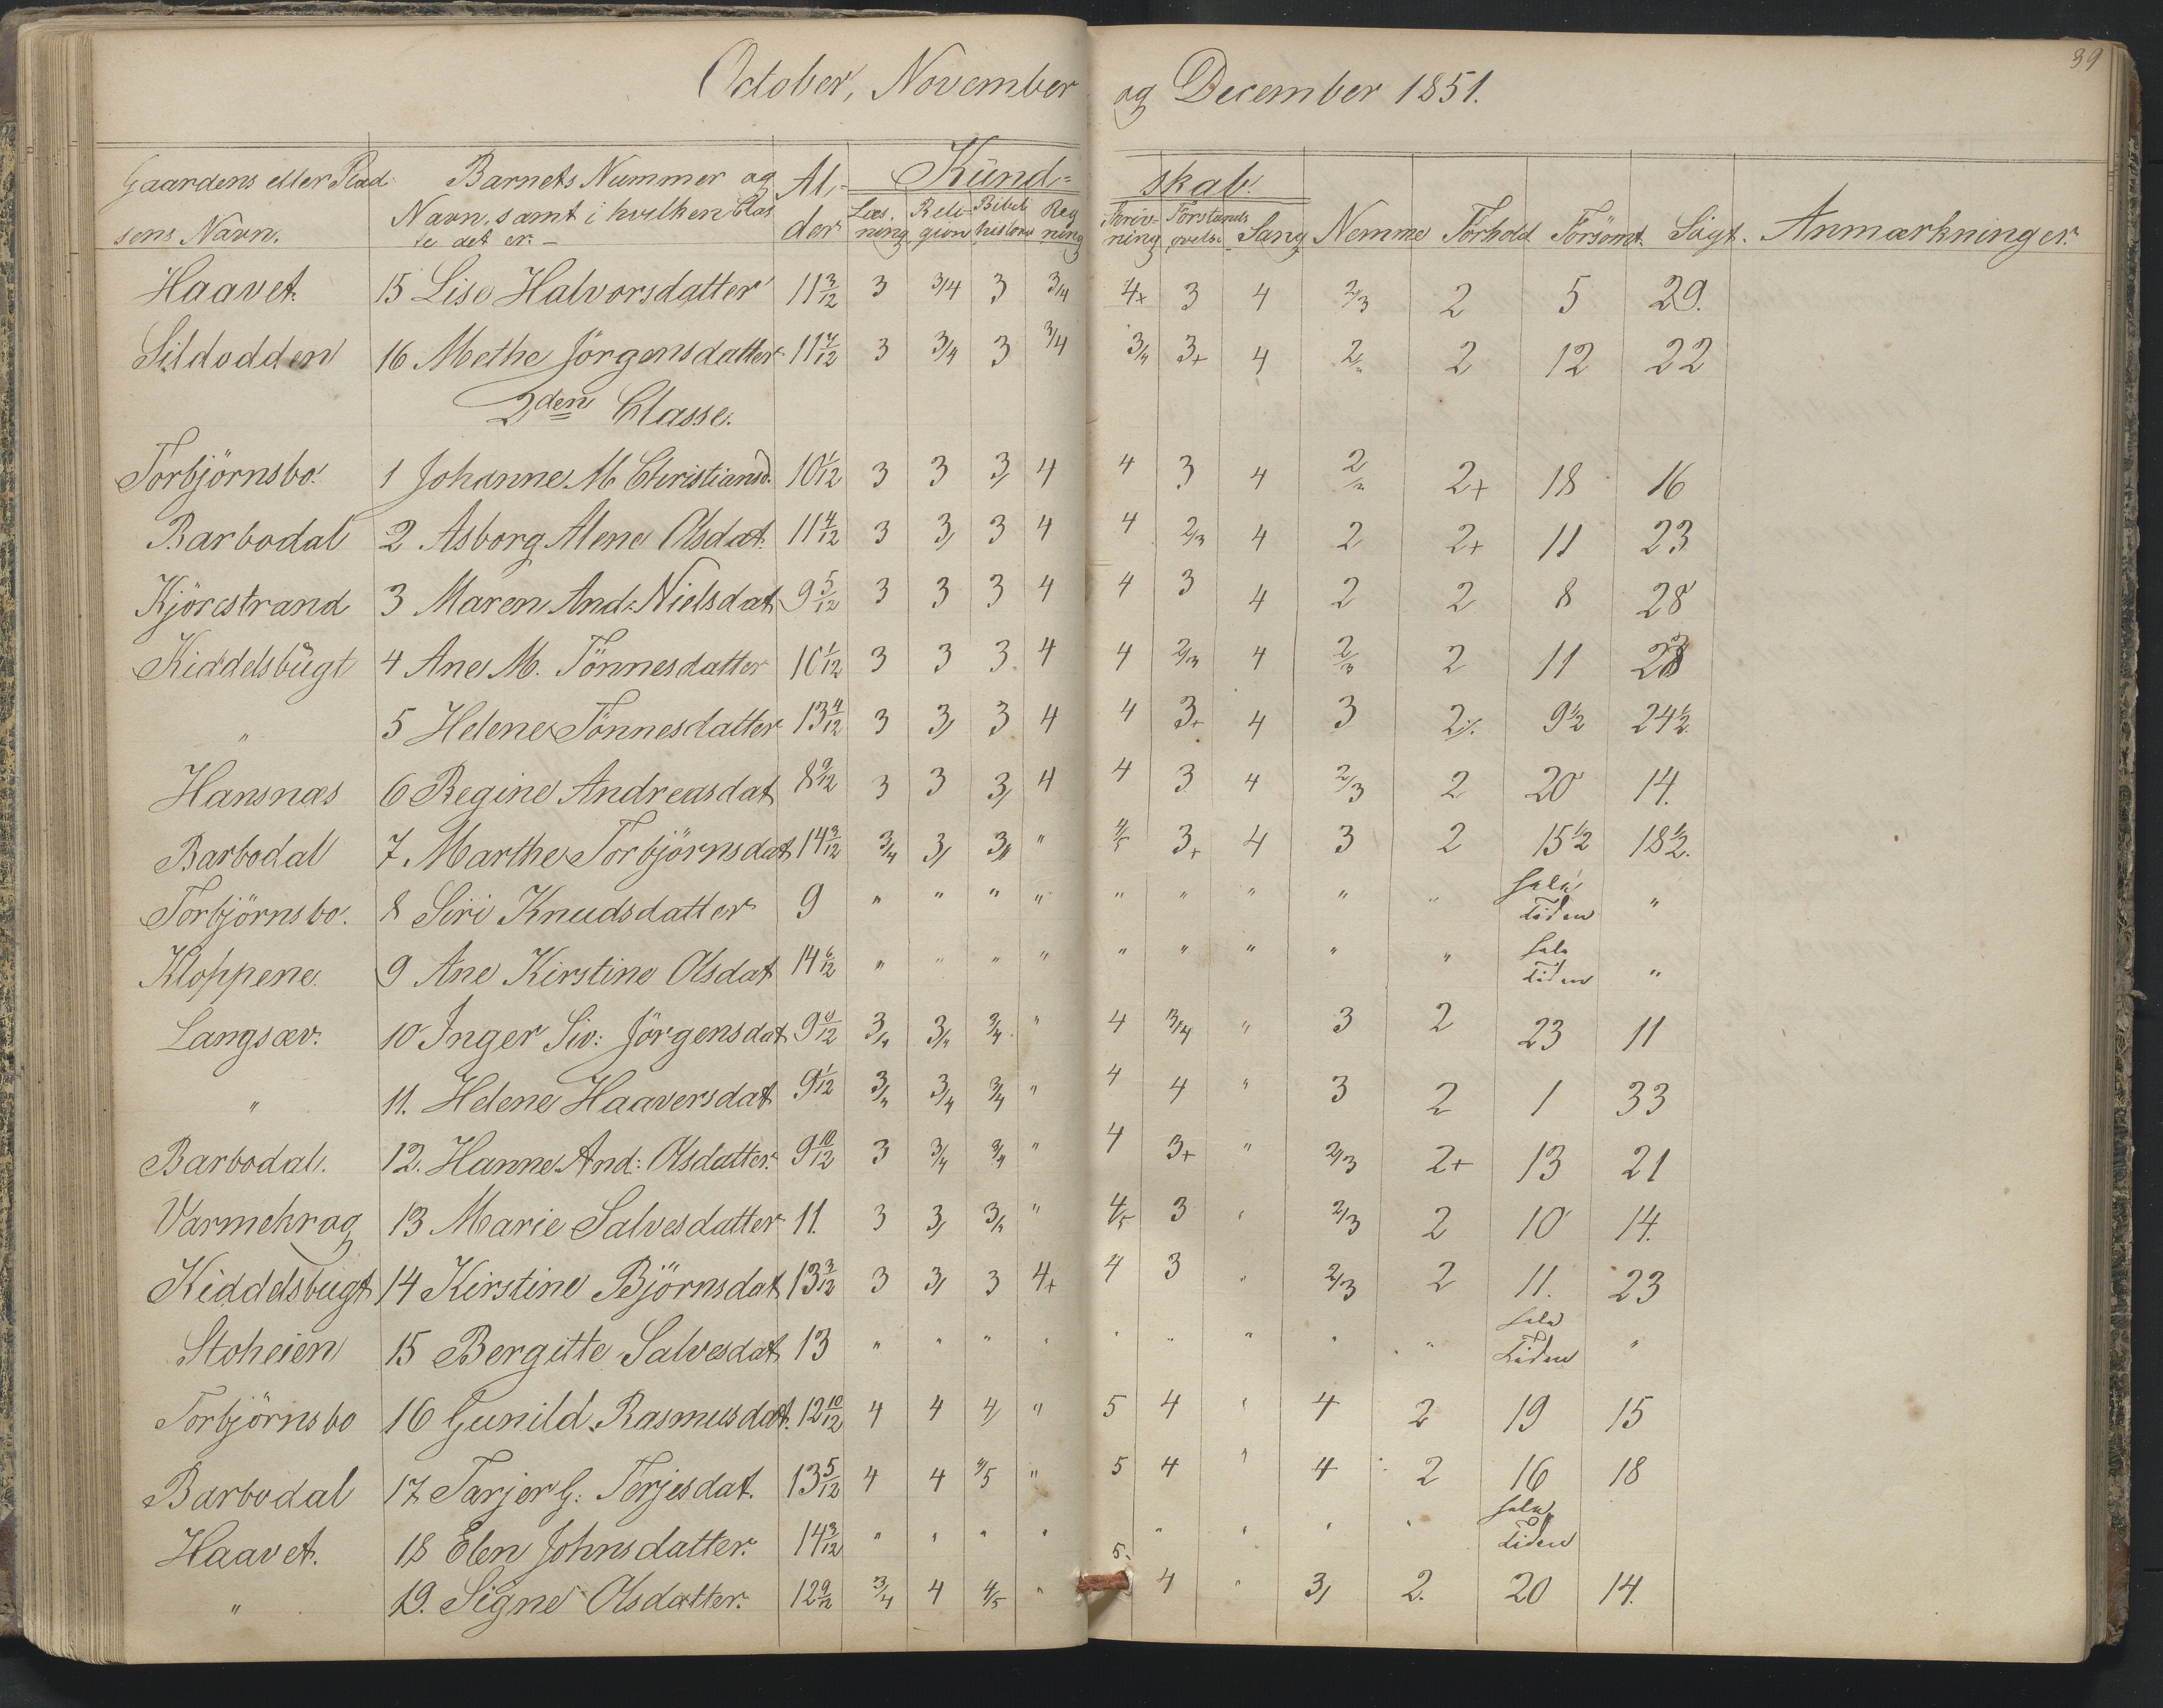 39
October, November og December 1851.
Gaardens eller Plad- Barnets Nummer og Al- Kund- skab.
sens Navn. Navn, samt i hvilken Clas der Læs. Reli- Bibel Reg Skriv- Forstands Sang Nemme Forhold Forsømt. Søgt. Anmærkninger.
se det er. ning gion historie ning ning øvelse
Haavet. 15 Lise Halvorsdatter 11 3/12 3 3/4 3 3/4 4+ 3 4 2/3 2 5 29.
Sildodden 16 Methe Jörgensdatter 11 7/12 3 3/4 3 3/4 3/4 3+ 4 2 2 12 22
2den Classe.
Torbjörnsbo. 1 Johanne M Christiansd. 10 1/12 3 3 3/ 4 4 3 4 2 2+ 18 16
Barbodal 2 Asborg Alene Olsdat. 11 4/12 3 3/ 3 4 4 2/3 4 2 2+ 11 23
Kjörestrand 3 Maren And: Nielsdat 9 5/12 3 3 3 4 4 3 4 2 2 8 28
Kiddelsbugt 4 Ane M. Tönnesdatter 10 1/12 3 3 3 4 4 2/3 4 2/3 2 11 23
" 5 Helene Tönnesdatter 13 4/12 3 3/ 3 4 4 3+ 4 3 2/. 9 1/2 24 1/2
Hansnæs 6 Regine Andreasdat 8 9/12 3 3 3/ 4 4 3 4 2/3 2 20 14.
Barbodal 7. Marthe Torbjörnsdat 14 3/12 3/4 3/ 3/ " 4/5 3+ 4 3 2 15 1/2 18 1/2.
Torbjörnsbo. 8 Siri Knudsdatter 9 " " " " " " " " " hele Tiden "
Kloppene. 9 Ane Kirstine Olsdat 14 6/12 " " " " " " " " " hele Tiden "
Langsæv. 10 Inger Siv: Jörgensdat 9 /12 3/4 3/4 3/4 " 4 3/4 " 3 2 23 11
" 11. Helene Haaversdat 9 1/12 3/4 3/4 3/4 " 4 4 " 3 2 1 33
Barbodal. 12. Hanne And: Olsdatter. 9 10/12 3 3/4 3/4 " 4 3+ " 2/3 2+ 13 21
Varmekrog 13 Marie Salvesdatter 11. 3 3/ 3/4 " 4/5 3 " 2/3 2 10 14.
Kiddelsbugt 14 Kirstine Björnsdat 13 3/12 3 3/ 3 4+ 4 3 " 2/3 2 11. 23
Stoheien 15 Bergitte Salvesdat 13 " " " " " " " " " hele Tiden "
Torbjörnsbo 16 Gunild Rasmusdat. 12 10/12 4 4 4/ " 5 4 " 4 2 19 15
Barbodal 17 Tarjer G: Terjesdat. 13 5/12 4 4 4/5 " 5 4 " 4 2 16 18
Haavet. 18 Elen Johnsdatter. 14 3/12 " " " " " " " " hele Tiden
" 19. Signe Olsdatter. 12 9/12 3/4 4 4/5 " 5. 4 " 3/ 2. 20 14.